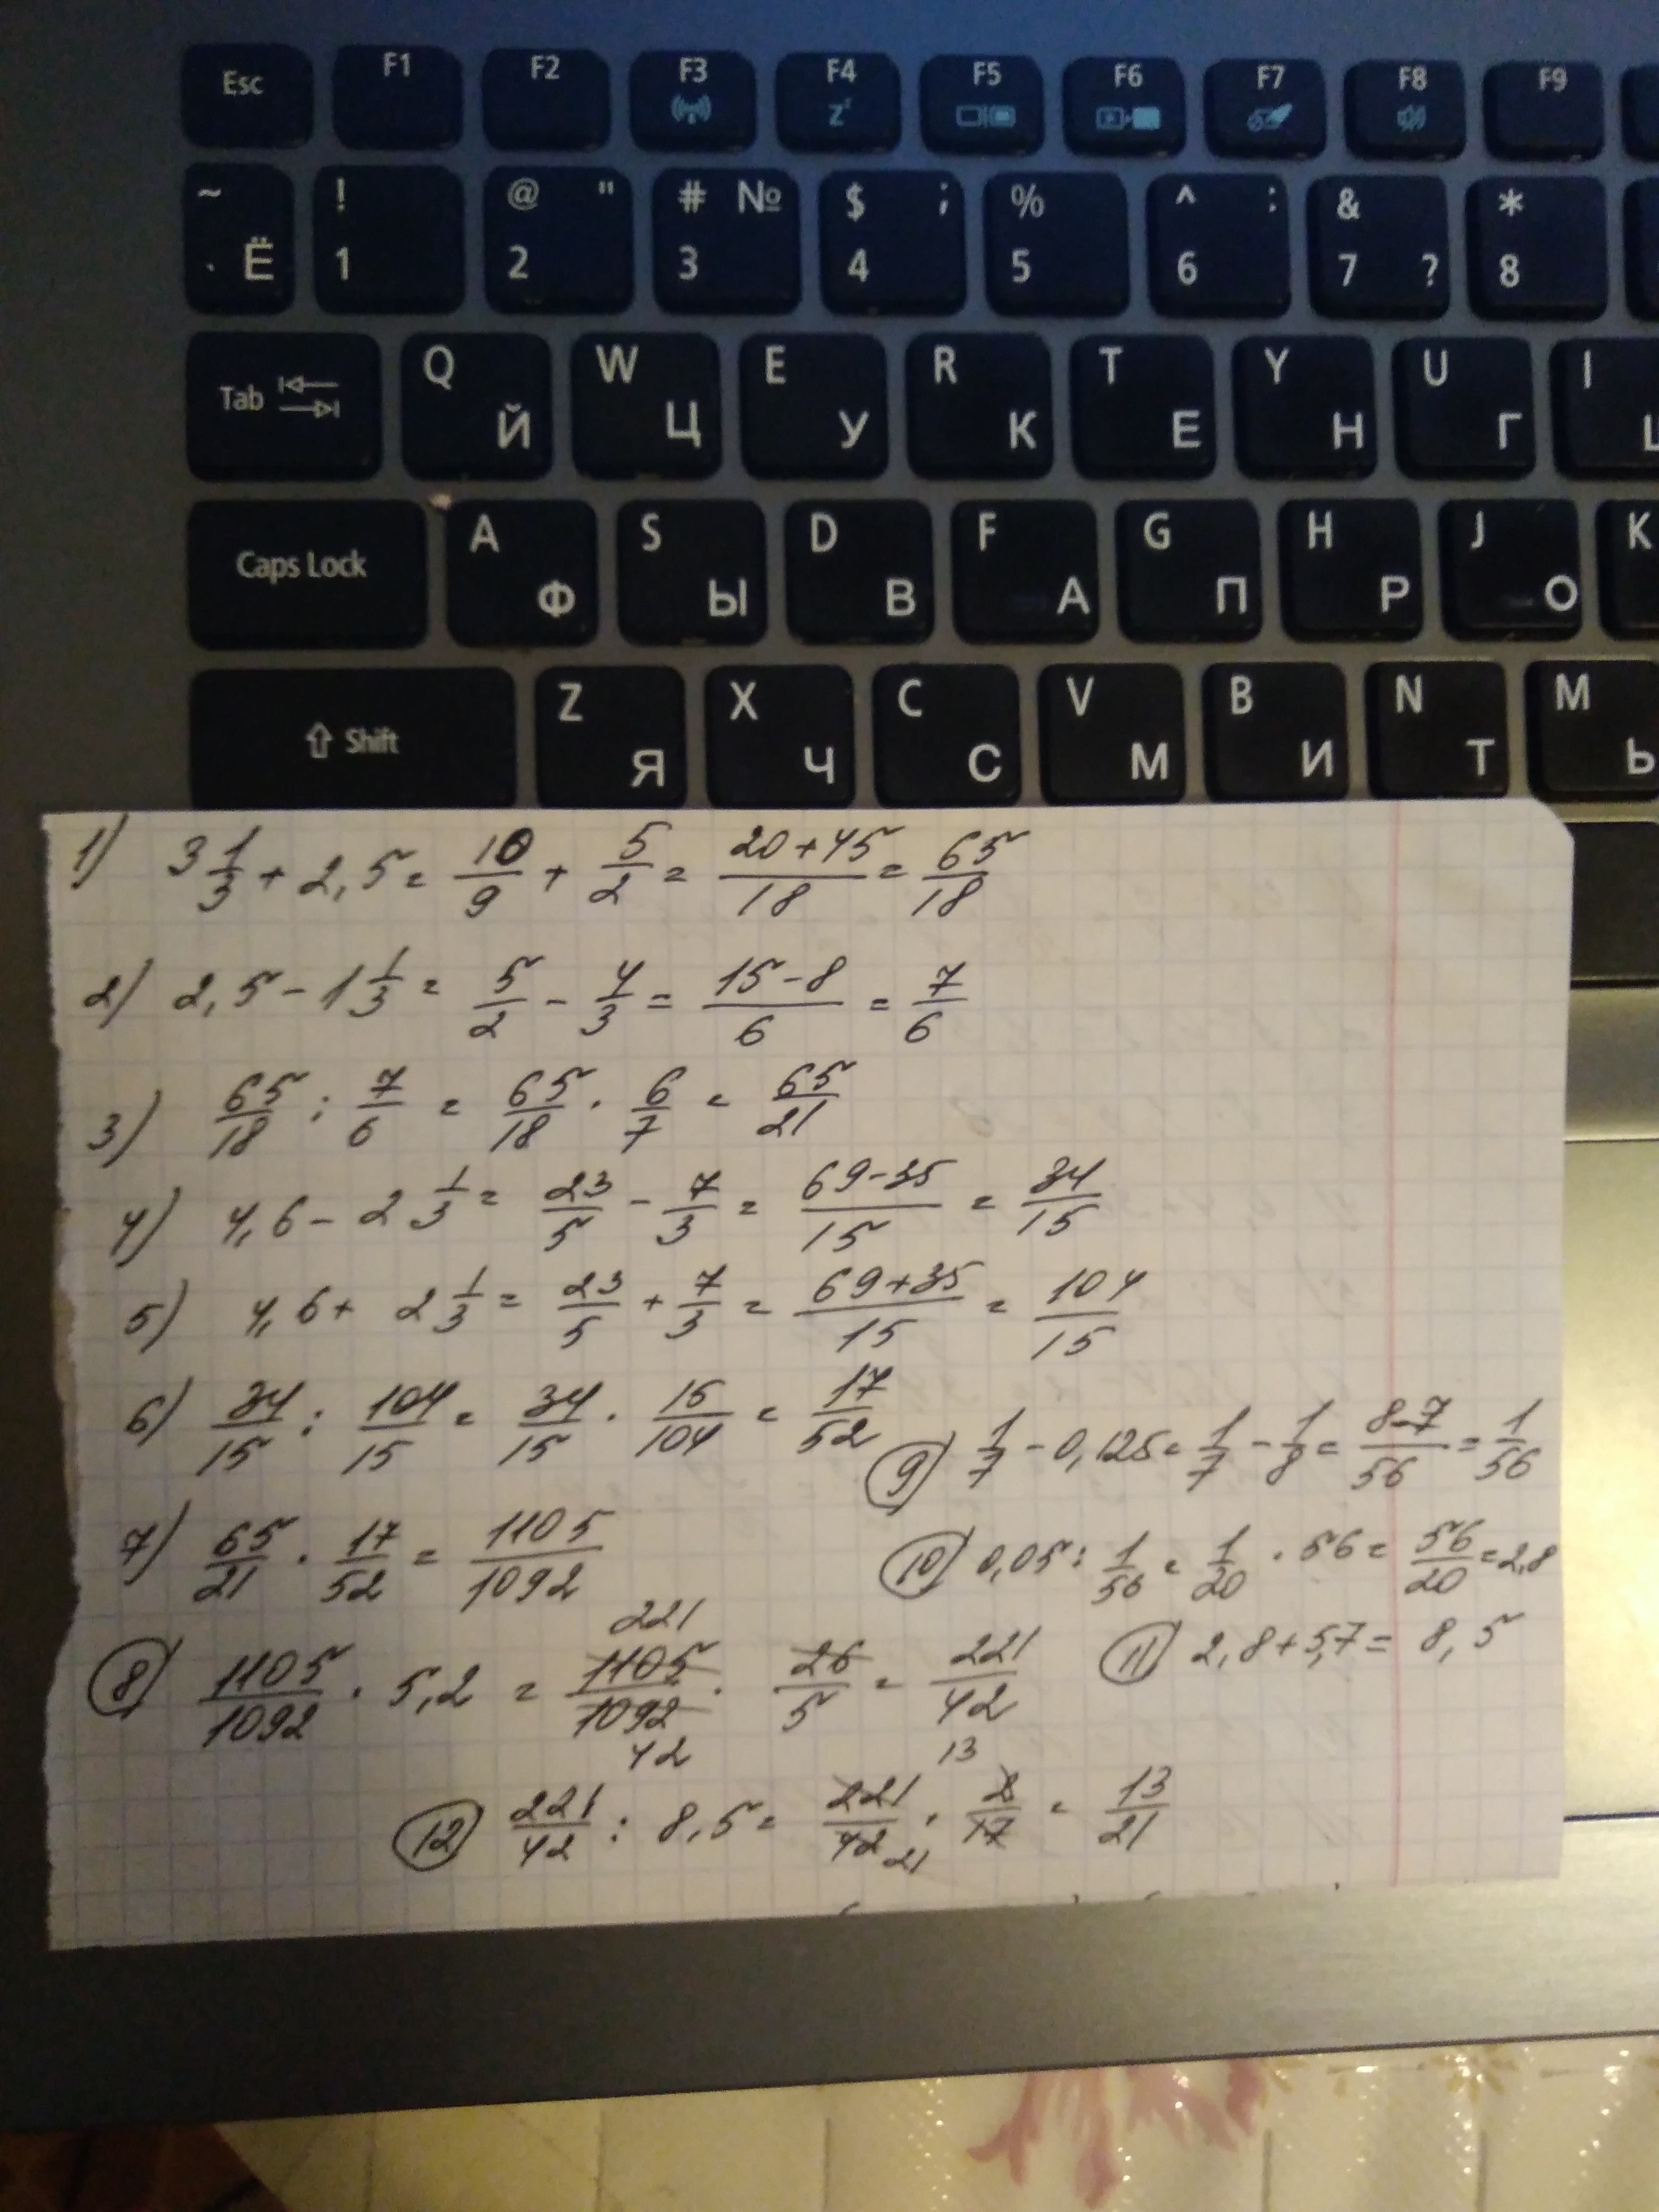 Esc F1 F2 F3 F4 F5 F6 F7 F8 F9
Zz
~ Ё ! 1 @ " 2 # № 3 $ ; 4 % 5 ^ : 6 & 7 ? * 8
Tab Q Й W Ц E У R К T Е Y Н U Г I
Caps Lock A Ф S Ы D В F А G П H Р J О K
Shift Z Я X Ч C С V М B И N Т M Ь
1) 3 1/3 + 2,5 = 10/9 + 5/2 = 20+45/18 = 65/18
2) 2,5 - 1 1/3 = 5/2 - 4/3 = 15-8/6 = 7/6
3) 65/18 : 7/6 = 65/18 · 6/7 = 65/21
4) 4,6 - 2 1/3 = 23/5 - 7/3 = 69-35/15 = 34/15
5) 4,6 + 2 1/3 = 23/5 + 7/3 = 69+35/15 = 104/15
6) 34/15 : 104/15 = 34/15 · 15/104 = 17/52
7) 65/21 · 17/52 = 1105/1092
221
8) 1105/1092 · 5,2 = 1105/1092 · 26/5 = 221/42
42
9) 1/7 - 0,125 = 1/7 - 1/8 = 8-7/56 = 1/56
10) 0,05 : 1/56 = 1/20 · 56 = 56/20 = 2,8
11) 2,8 + 5,7 = 8,5
13
12) 221/42 : 8,5 = 221/42 · 2/17 = 13/21
21